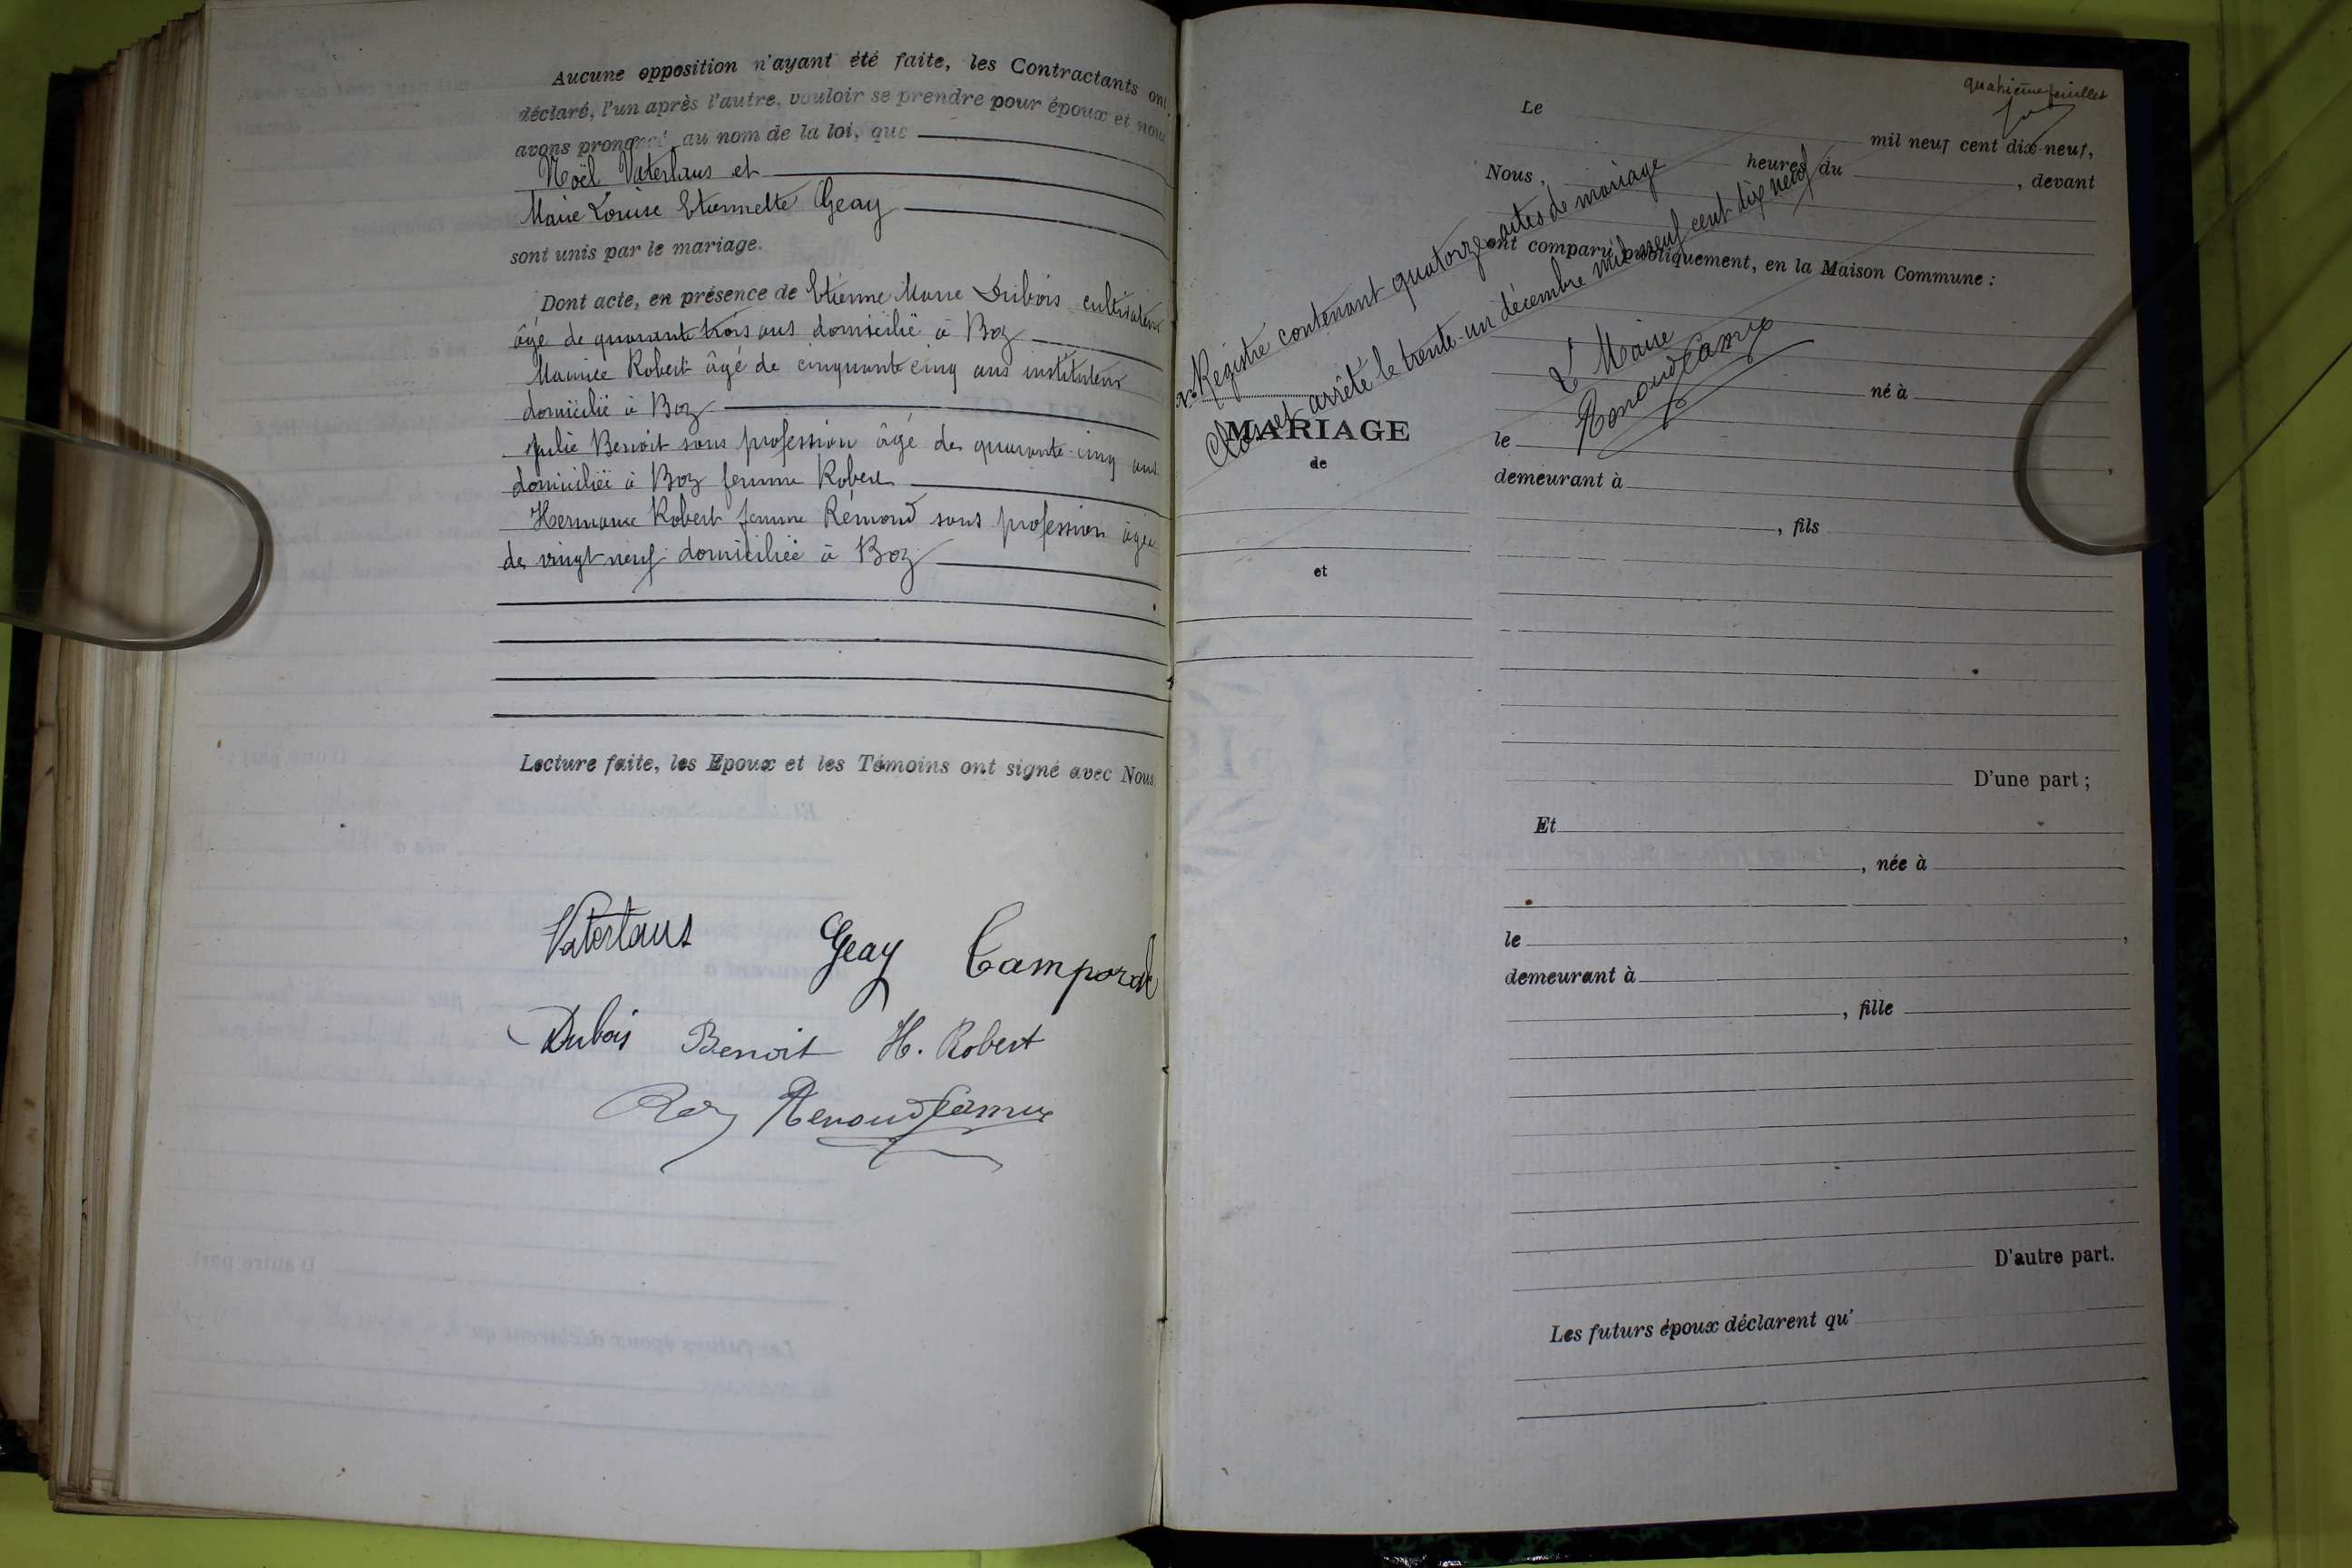 Aucune opposition n'ayant été faite, les Contractants ont
déclaré, l'un après l'autre, vouloir se prendre pour époux et nous
avons prononcé, au nom de la loi, que
Noël Vaterlaus et
Marie Louise Etiennette Geay
sont unis par le mariage.
Dont acte, en présence de Etienne Marie Dubois cultivateur
âgé de quarante trois ans domicilié à Boz
Maurice Robert âgé de cinquante cinq ans instituteur
domicilié à Boz
Julie Benoit sans profession âgé de quarante-cinq ans
domiciliée à Boz femme Robert
Robert femme Rémond sans profession âgée
de vingt neuf domiciliée à Boz
Lecture faite, les Epoux et les Témoins ont signé avec Nous.
Vaterlaus Geay Camporal
Dubois Benoit H. Robert
Renoud Camus
quatrième feuillet
Le
mil neuf cent dix-neuf,
heures du , devant
Nous,
ont comparu publiquement, en la Maison Commune :
Registre contenant quatorze actes de mariage
Clos et arrêté le trente-un décembre mil neuf cent dix neuf
Le Maire
Renoud Camus
No
MARIAGE
de
et
né à
le
demeurant à
, fils
D'une part ;
Et
, née à
le ,
demeurant à
, fille
D'autre part.
Les futurs époux déclarent qu'